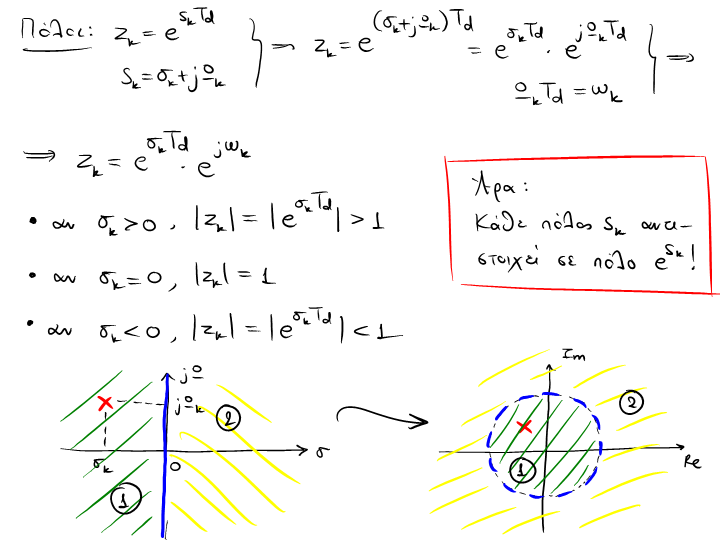 Πόλοι: z_k = e^{s_k T_d} } ⇒ z_k = e^{(σ_k + jΩ_k) T_d} = e^{σ_k T_d} · e^{jΩ_k T_d} } ⇒
s_k = σ_k + jΩ_k
Ω_k T_d = ω_k
⇒ z_k = e^{σ_k T_d} · e^{jω_k}
• αν σ_k > 0, |z_k| = |e^{σ_k T_d}| > 1
• αν σ_k = 0, |z_k| = 1
• αν σ_k < 0, |z_k| = |e^{σ_k T_d}| < 1
Άρα:
Κάθε πόλος s_k αντι-
στοιχεί σε πόλο e^{s_k}!
jΩ
jΩ_k
2
σ_k
0
σ
1
Im
2
1
Re